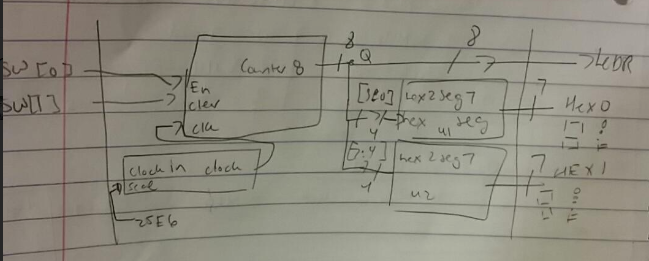 8
8
SW[0]
Counter 8
Q
LEDR
En
SW[1]
clear
hex2seg7
7
Hex0
clk
hex
seg
4
u1
clock in clock
hex2seg7
7
HEX1
4
u2
25E6